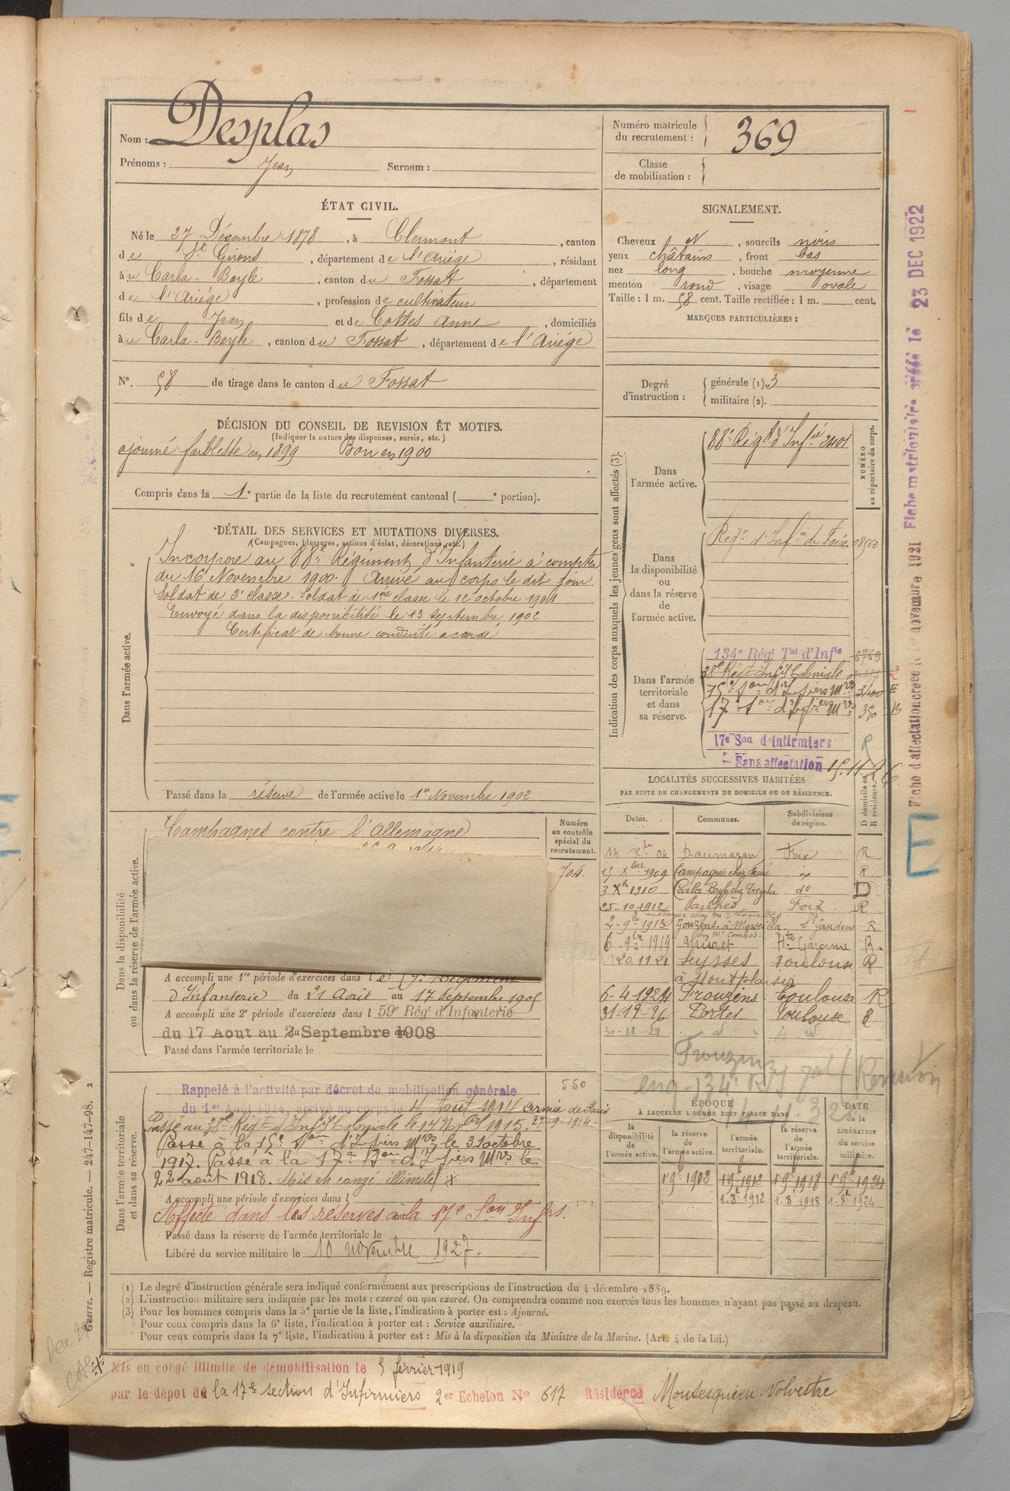 Nom : Desplas
Prénoms : Jean Surnom :
Numéro matricule du recrutement : 369
Classe de mobilisation :
ÉTAT CIVIL.
Né le 27 Décembre 1878, à Clermont, canton
de St Girons, département de l'Ariége, résidant
à u Carla-Bayle, canton du Fossat, département
de l'Ariége, profession de cultivateur
fils de Jean et de Cottes Anne, domiciliés
à u Carla-Bayle, canton du Fossat, département de l'Ariége
N°. 58 de tirage dans le canton du Fossat
SIGNALEMENT.
Cheveux N, sourcils noirs
yeux châtains, front bas
nez long, bouche moyenne
menton rond, visage ovale
Taille : 1 m. 58 cent. Taille rectifiée : 1 m. cent.
MARQUES PARTICULIÈRES :
Degré d'instruction : générale (1). 3
militaire (2).
DÉCISION DU CONSEIL DE REVISION ET MOTIFS.
(Indiquer la nature des dispenses, sursis, etc.)
ajourné faiblesse en 1899 Bon en 1900
Compris dans la 1e partie de la liste du recrutement cantonal ( e portion).
DÉTAIL DES SERVICES ET MUTATIONS DIVERSES.
(Campagnes, blessures, actions d'éclat, décorations, etc.)
Dans l'armée active.
Incorporé au 88e Régiment d'Infanterie à compter
du 16 Novembre 1900. Arrivé au corps le dit jour
Soldat de 2e classe. Soldat de 1ère classe le 1er octobre 1901
Envoyé dans la disponibilité le 13 septembre 1902
Certificat de bonne conduite accordé
Passé dans la réserve de l'armée active le 1er Novembre 1902
Indication des corps auxquels les jeunes gens sont affectés (3).
NUMÉRO au répertoire du corps.
Dans l'armée active.
88e Rég d'Infie
Dans la disponibilité ou dans la réserve de l'armée active.
Regt d'Infie de Foix
Dans l'armée territoriale et dans sa réserve.
134e Régt Tal d'Infie
38e Régt Infie Coloniale
15e Son d'Infiers Mres
17e Son d'Infiers Mres
17e Son d'Infirmiers
Sans affectation 15.11.26
LOCALITÉS SUCCESSIVES HABITÉES
PAR SUITE DE CHANGEMENTS DE DOMICILE OU DE RÉSIDENCE.
Dates. Communes. Subdivisions de région. D domicile ou R résidence.
14 Xbre 04 Daumazan Foix R
15 Xbre 1909 Campagne R
3 Xbre 1910 Carla Bayle do D
25-10-1912 Pailhès Foix R
2-9bre 1913 St Gaudens R
6-9bre 1919 Muret Hte Garonne R
20 11 21 Seysses Toulouse R
6-4-1924 Frouzins Toulouse R
31-12-26 Portet Toulouse R
30-12-29
Frouzins
Dans la disponibilité ou dans la réserve de l'armée active.
Campagnes contre l'Allemagne
Numéro au contrôle spécial du recrutement.
704
A accompli une 1re période d'exercices dans l
d'Infanterie du 21 Août au 17 Septembre 1905
A accompli une 2e période d'exercices dans l 59e Rég' d'Infanterie
du 17 Aout au Septembre 1908
Passé dans l'armée territoriale le
Dans l'armée territoriale et dans sa réserve.
Rappelé à l'activité par décret de mobilisation générale
du 1er Août 1914, arrivé au corps le 4 Août 1914 armée de Paris
27-9-1914
550
Passé au 38e Régt d'Infie Coloniale le 1915.
Passé à la 15e Son d'Infiers Mres le 31 octobre
1917. Passé à la 17e Son d'Infiers Mres le
22 août 1918. Mis en congé illimité x
A accompli une période d'exercices dans l
Affecté dans les réserves à la 17e Son Infrs.
Passé dans la réserve de l'armée territoriale le
Libéré du service militaire le 10 novembre 1927.
ÉPOQUE
À LAQUELLE L'HOMME DOIT PASSER DANS
DATE de la LIBÉRATION du service militaire.
la disponibilité de l'armée active. la réserve de l'armée active. l'armée territoriale. la réserve de l'armée territoriale.
1.8.1912 1.8.1918 1.8.1924
(1) Le degré d'instruction générale sera indiqué conformément aux prescriptions de l'instruction du 4 décembre 1889.
(2) L'instruction militaire sera indiquée par les mots : exercé ou non exercé. On comprendra comme non exercés tous les hommes n'ayant pas passé au drapeau.
(3) Pour les hommes compris dans la 5e partie de la liste, l'indication à porter est : Ajourné.
Pour ceux compris dans la 6e liste, l'indication à porter est : Service auxiliaire.
Pour ceux compris dans la 7e liste, l'indication à porter est : Mis à la disposition du Ministre de la Marine. (Art. 4 de la loi.)
Guerre. — Registre matricule. — 247-147-98. 2
Mis en congé illimité de démobilisation le 5 février 1919
par le dépot de la 17e section d'Infirmiers 2er Echelon N° 617 Résidence Montesquieu-Volvestre
23 DEC 1922